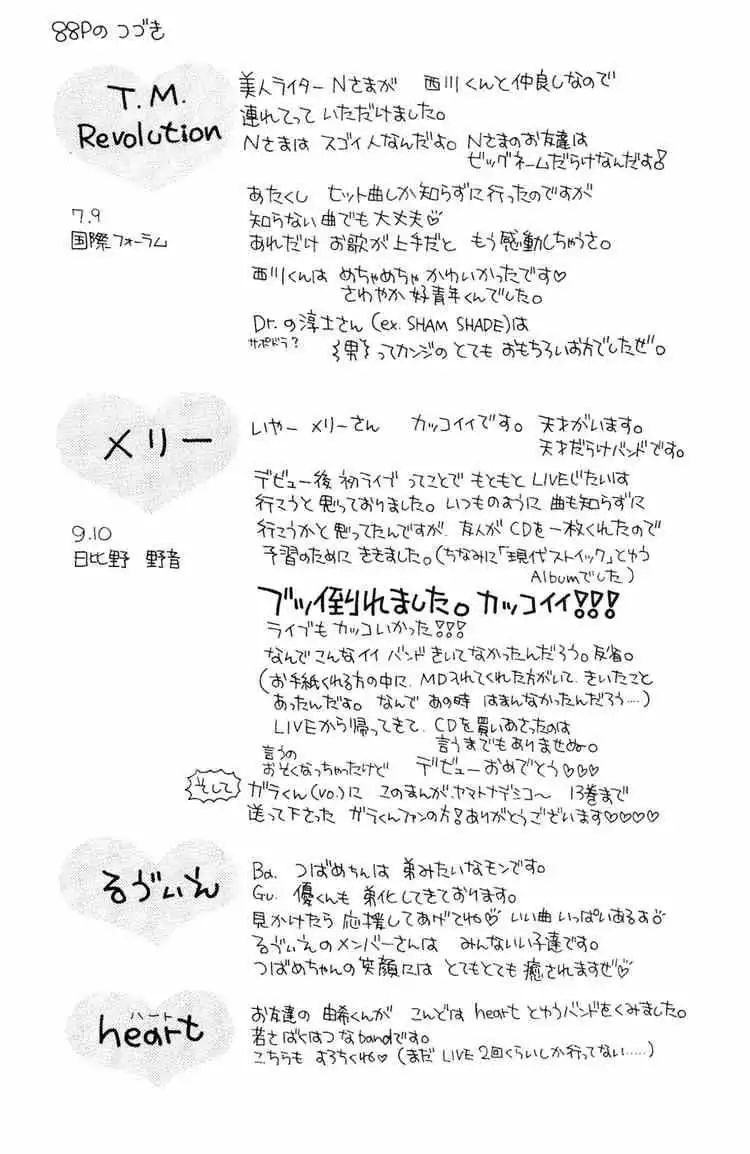 88Pの つづき
T.M.
Revolution
7.9
国際フォーラム
美人ライターNさまが 西川くんと仲良しなので
連れてって いただけました。
Nさまは スゴイ人なんだよ。Nさまのお友達は
ビッグネームだらけなんだよ!
あたくし ヒット曲しか知らずに行ったのですが
知らない曲でも大丈夫♡
あれだけ お歌が上手だと もう感動しちゃうさ。
西川くんは めちゃめちゃ かわいかったです♡
さわやか好青年くんでした。
Dr.の淳士さん(ex. SHAM SHADE)は
サポドラ?
男 ってカンジの とても おもちろいお方でしたぜ。
メリー
9.10
日比野 野音
いやー メリーさん カッコイイです。 天才がいます。
天才だらけバンドです。
デビュー後 初ライブ ってことで もともと LIVEじたいは
行こうと思っておりました。いつものように 曲も知らずに
行こうかと思ってたんですが、友人が CDを一枚くれたので
予習のために ききました。(ちなみに「現代ストイック」とゆう
Albumでした)
ブッ倒れました。カッコイイ!!!
ライブも カッコいかった!!!
なんで こんなイイ バンド きいてなかったんだろう。反省。
(お手紙くれる方の中に、MD入れてくれた方がいて、きいたこと
あったんだよ。なんで あの時 はまんなかったんだろう‥‥)
LIVEから帰ってきて、CDを買いあさったのは
言うまでもありませぬ。
言うの
おそくなっちゃったけど デビューおめでとう♡♡♡
そして ガラくん(vo.)に このまんが、ヤマトナデシコ〜 13巻まで
送って下さった ガラくんファンの方!ありがとうございます♡♡♡♡
るゔぃえ
Ba. つばめちんは 弟みたいなモンです。
Gu. 優くんも 弟化してきております。
見かけたら 応援してあげてね♡ いい曲 いっぱいあるよ♡
るゔぃえのメンバーさんは みんないい子達です。
つばめちゃんの笑顔には とてもとても 癒されますぜ♡
ハート
heart
お友達の 由希くんが こんどは heart とゆうバンドをくみました。
若さばくはつ なbandです。
こちらも よろちくね♡ (まだ LIVE 2回くらいしか行ってない‥‥‥)